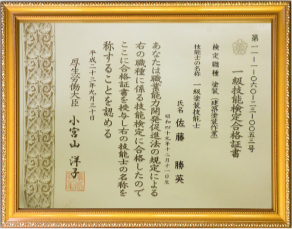 第一一一一〇六〇一一三一〇〇五三号
一級技能検定合格証書
検定職種 塗装(建築塗装作業)
技能士の名称 一級塗装技能士
氏名 佐藤 勝英
あなたは職業能力開発促進法の規定による
右の職種に係る技能検定に合格したので
ここに合格証書を授与し右の技能士の名称を
称することを認める
平成二十三年九月三十日
厚生労働大臣 小宮山 洋子